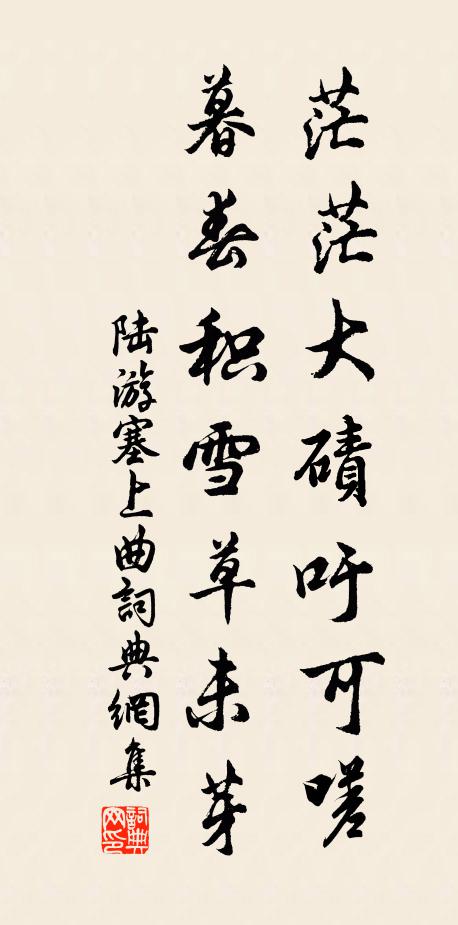 茫茫大碛吁可嗟
暮春积雪草未芽
陆游塞上曲詞典網集
詞典网印